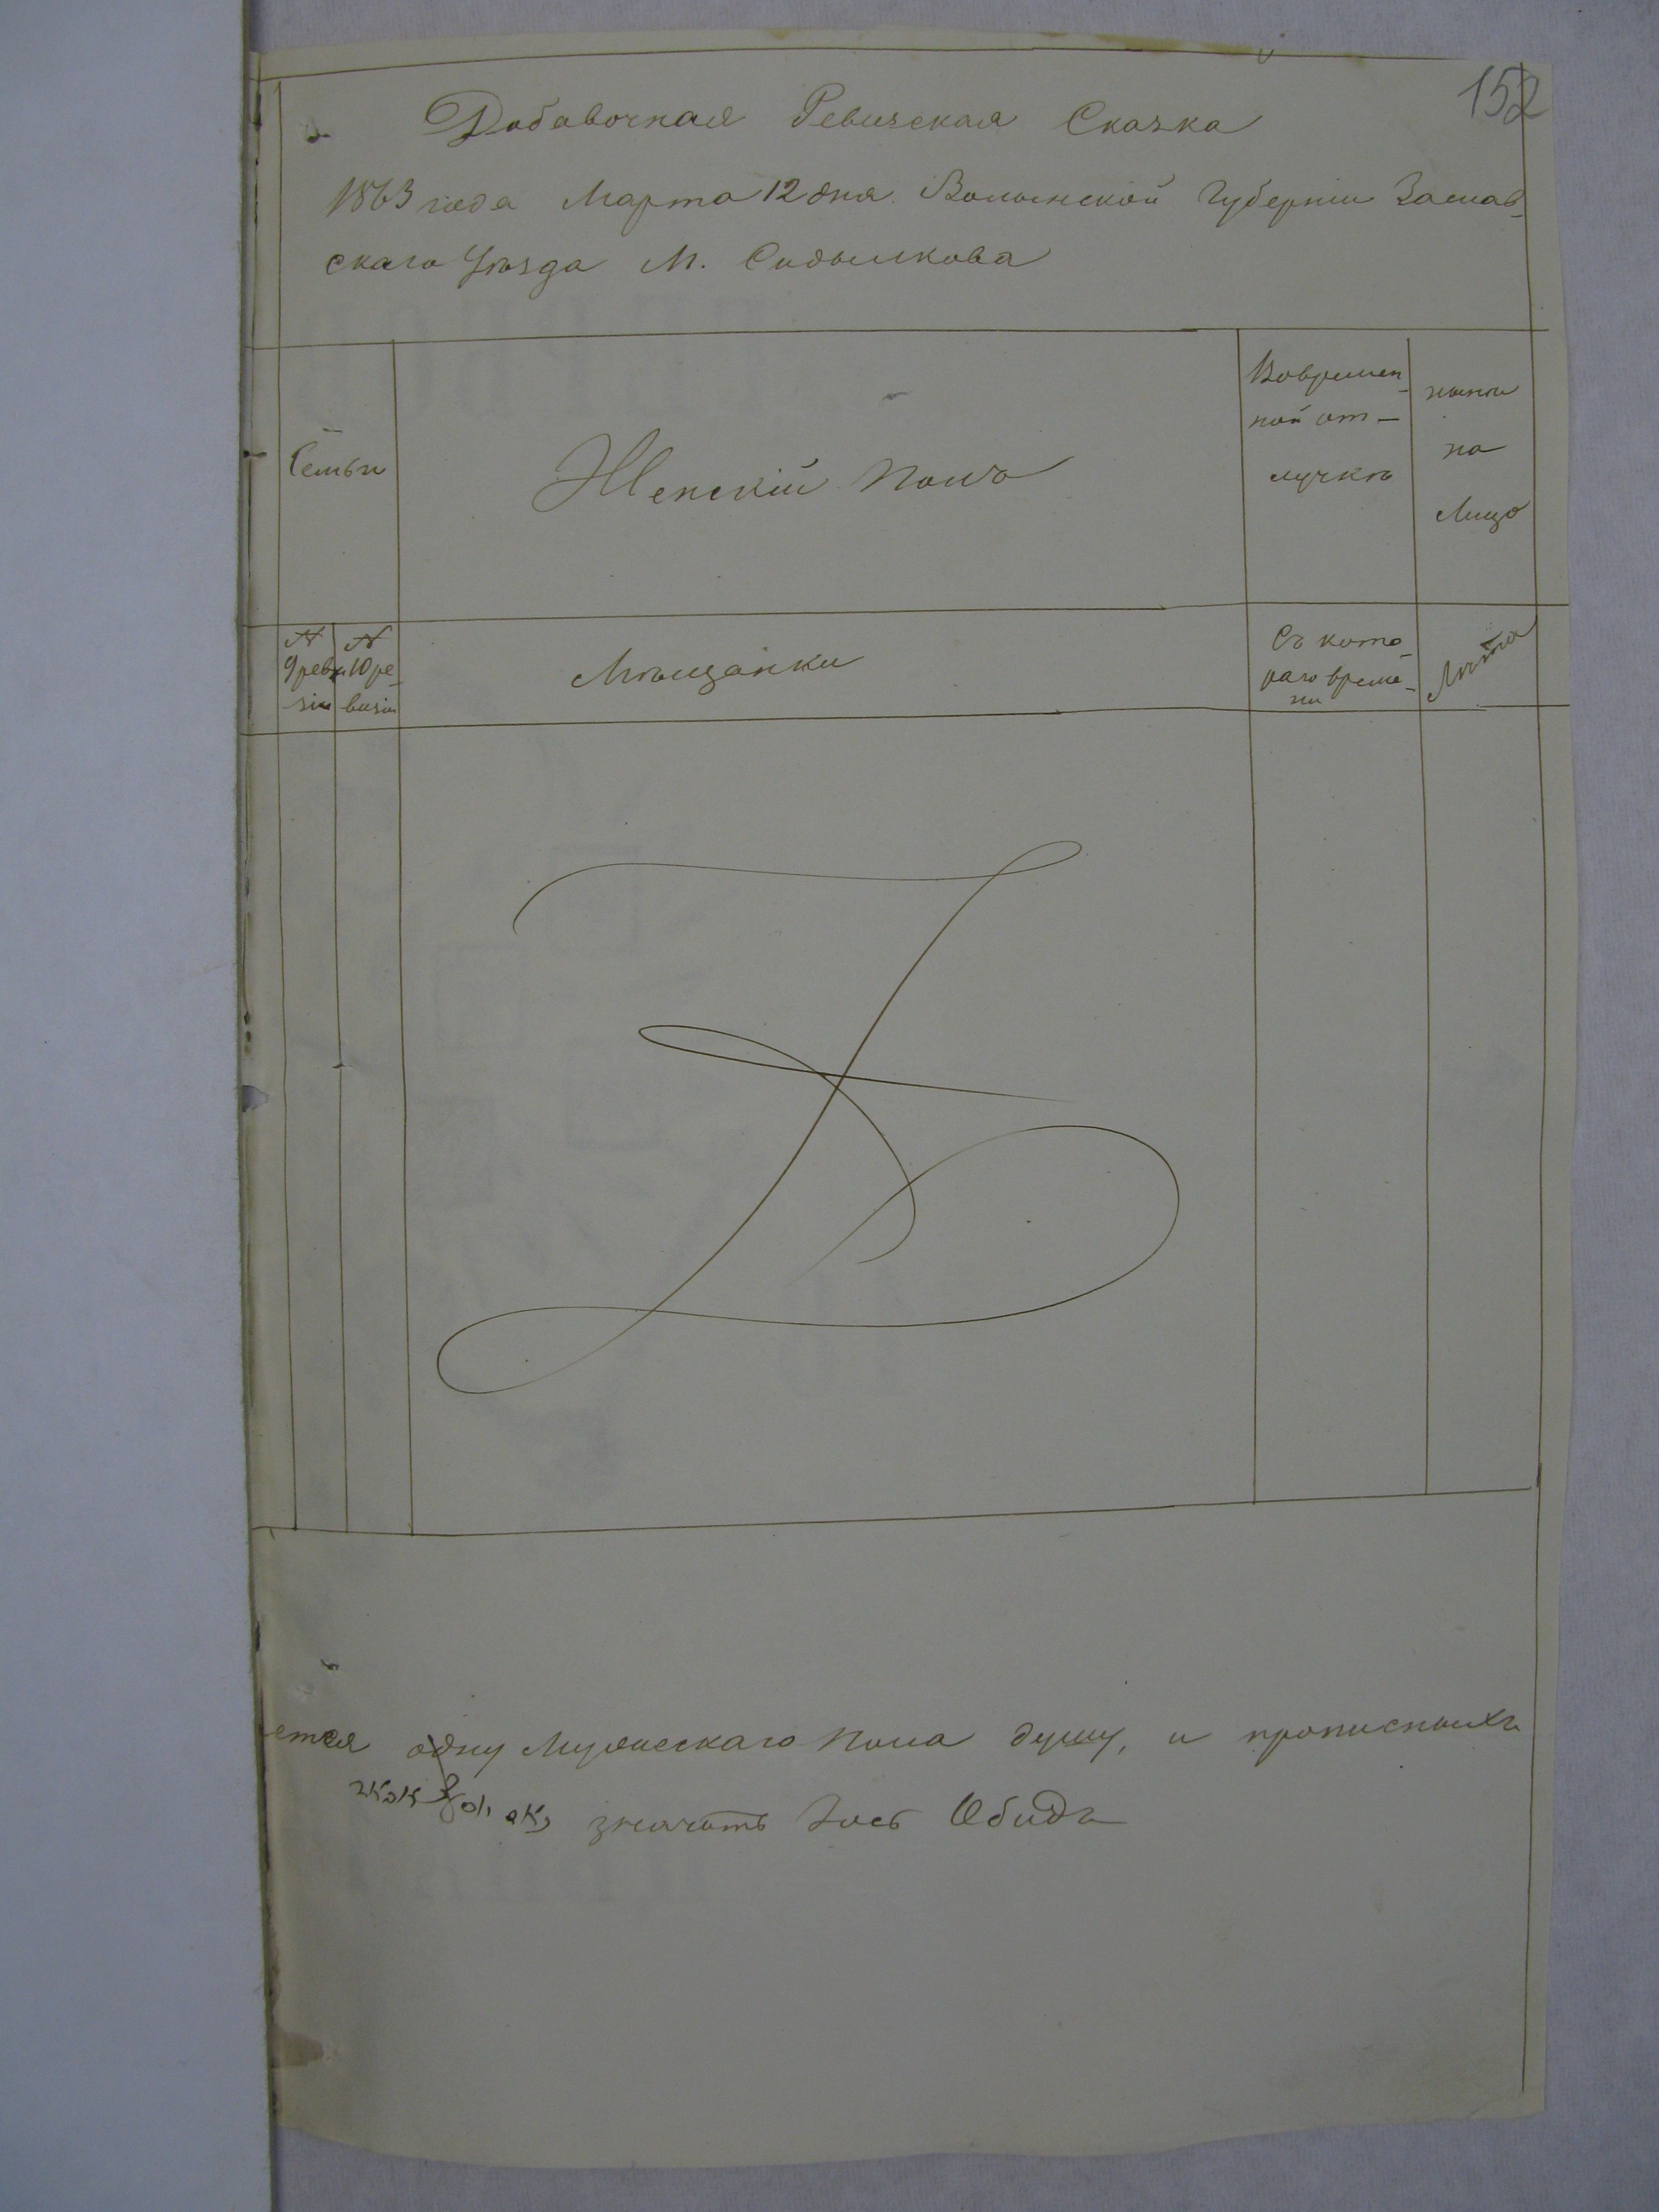 152
Добавочная Ревизская Сказка
1863 года Марта 12 дня Волынской Губерніи Заслав-
скаго Уѣзда М. Судылкова
Семьи
Женскій полъ
Вовремен-
ной от-
лучкѣ
нынѣ
на
Лицо
№ 9 реви-
зіи
№ 10 ре-
визіи
Мѣщанки
Съ кото-
раго време-
ни
Лѣта
ется одну Мужескаго пола душу, и прописныхъ
значитъ Іось Обидъ